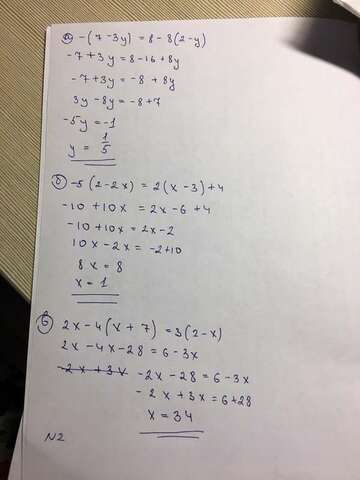 а) -(7-3y) = 8-8(2-y)
-7+3y = 8-16+8y
-7+3y = -8+8y
3y-8y = -8+7
-5y = -1
y = 1/5
б) -5(2-2x) = 2(x-3)+4
-10+10x = 2x-6+4
-10+10x = 2x-2
10x-2x = -2+10
8x = 8
x = 1
в) 2x-4(x+7) = 3(2-x)
2x-4x-28 = 6-3x
-2x+3x -2x-28 = 6-3x
-2x+3x = 6+28
x = 34
N2